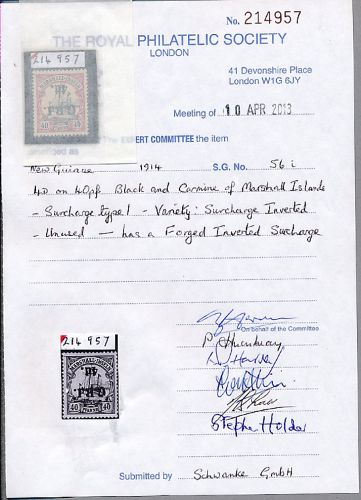 No. 214957
THE ROYAL PHILATELIC SOCIETY
LONDON
214 957
41 Devonshire Place
London W1G 6JY
Meeting of 10 APR 2013
EXPERT COMMITTEE the item
New Guinea 1914 S.G. No. 56 i
4D on 40pf Black and Carmine of Marshall Islands
- Surcharge type 1 - Variety: Surcharge Inverted
- Unused - has a Forged Inverted Surcharge
On behalf of the Committee
214 957
40 40
Stephen Holder
Submitted by Schwanke GmbH